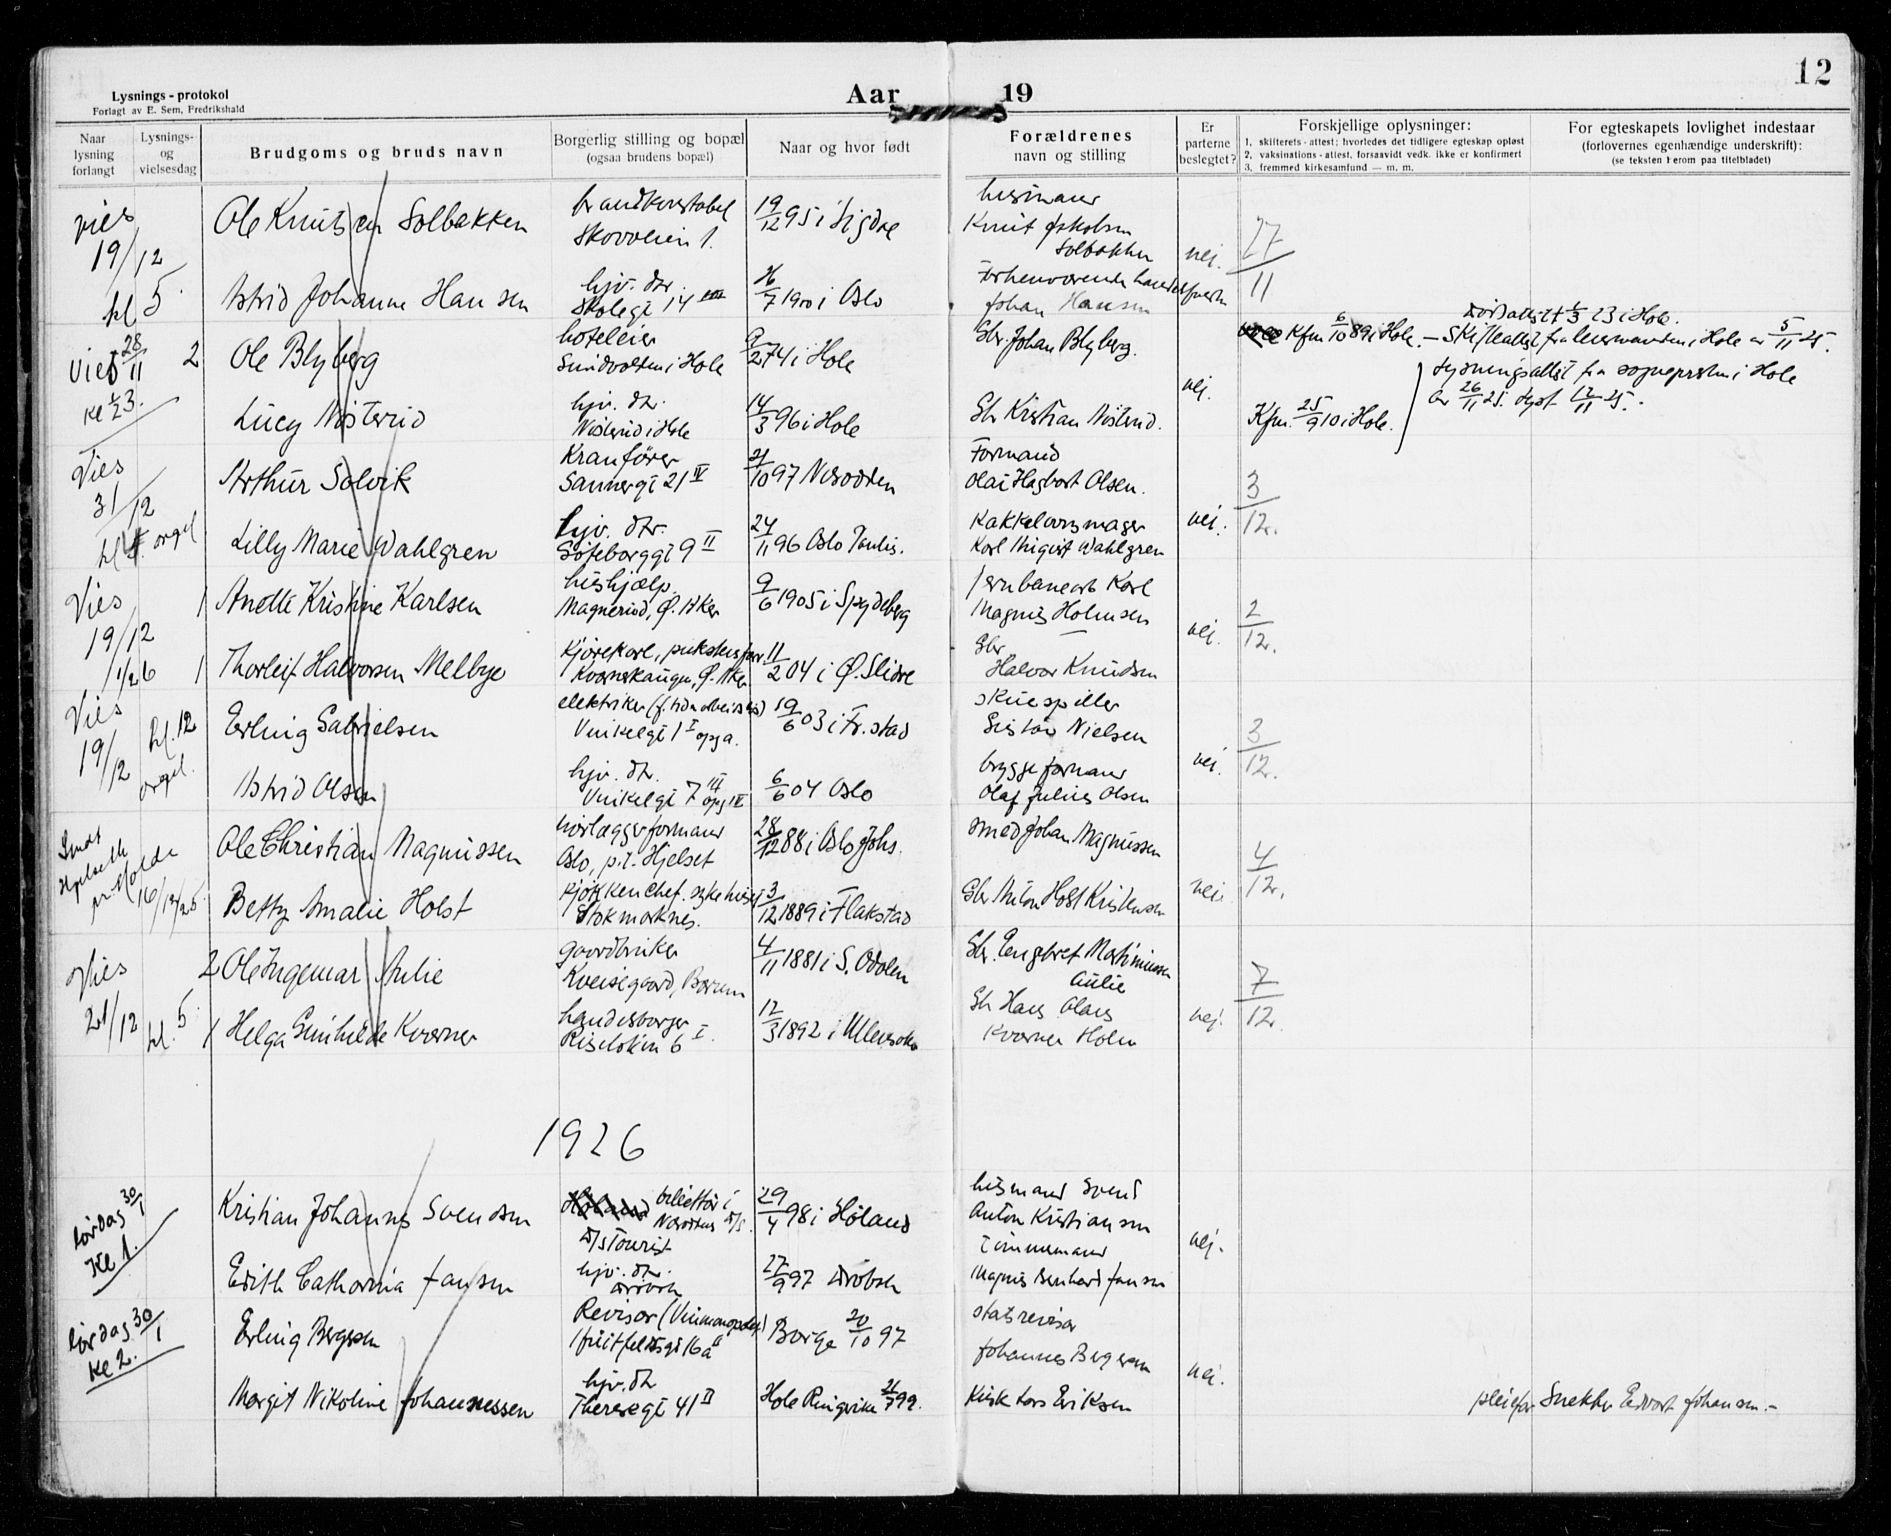 12
Lysnings-protokol
Forlagt av E. Sem, Fredrikshald
Aar 19
Naar lysning forlangt
Lysnings- og vielsesdag
Brudgoms og bruds navn
Borgerlig stilling og bopæl
(ogsaa brudens bopæl)
Naar og hvor født
Forældrenes
navn og stilling
Er parterne beslegtet?
Forskjellige oplysninger:
1. skifterets-attest: hvorledes det tidligere egteskap opløst
2. vaksinations-attest, forsaavidt vedk. ikke er konfirmert
3. fremmed kirkesamfund — m. m.
For egteskapets lovlighet indestaar
(forlovernes egenhændige underskrift):
(se teksten herom paa titelbladet)
vies 19/12 kl 5.
Ole Knutsen Solbakken
brandkonstabel
Skovveien 1.
19/12 95 i Sigdal
husmann
Knut Jakobsen
Solbakken
nei.
27/11
Astrid Johanne Hansen
hjv. dtr.
Skolegt 14
26/7 1900 i Oslo
Forhenværende
Johan Hansen
Viet 28/11 2
kl 1/2 3.
Ole Blyberg
hoteleier
Sundvolden i Hole
9/2 74 i Hole
Gbr. Johan Blyberg.
nei.
Dødsattest + 1/3 23 i Hole.
Kfm 6/10 89 i Hole. – Skifteattest fra lensmanden i Hole av 5/11 25.
Lucy Nösterud
hjv. dtr.
Nösterud i Hole
14/3 96 i Hole
Gbr Kristian Nösterud.
Kfm. 25/9 10 i Hole.
Lysningsattest fra sognepresten i Hole
av 26/11 25. Lyst 12/11 25.
Vies 31/12 kl 4. orgel
Arthur Solvik
Kranfører
Sannergt 21 IV
21/10 97 Nesodden
Formand
Olai Hagbart Olsen.
nei.
3/12.
Lilly Marie Wahlgren
hjv. dtr.
Gøteborggt 9 II
24/11 96 Oslo Paulus.
Kakkelovnsmager
Karl August Wahlgren
Vies 19/12 1/2 6
1 Anette Kristine Karlsen
hushjælp
Magnerud, Ø. Aker
9/6 1905 i Spydeberg
Jernbanearb Karl
Magnus Holmsen
nei.
2/12.
1 Thorleif Halvorsen Melbye
Kjørekarl,
Kværnerhaugen, Ø. Aker
11/2 04 i Ø. Slidre
Gbr
Halvor Knudsen
Vies 19/12 kl. 12 orgel.
Erling Gabrielsen
elektriker (f. tiden arbeidsløs)
Vinkelgt 1 I opg a.
19/6 03 i Fr. stad
skuespiller
Gustav Nielsen
nei.
3/12.
Astrid Olsen
hjv. dtr.
Vinkelgt 7 III opg IV
6/6 04 Oslo
bryggeformann
Olaf Julius Olsen
Sendt Hjelseth pr Molde 16/12 25.
Ole Christian Magnussen
rørlæggerformann
Oslo, p.t. Hjelset
28/12 88 i Oslo Johs.
smed Johan Magnussen
nei.
4/12.
Betty Amalie Holst
kjøkkenchef. sykehuset
Stokmarknes.
3/12 1889 i Flakstad
Gbr Anton Holst Kristensen
Vies 21/12 kl. 5.
2 Ole Ingemar Aulie
gaardbruker
Kveisegaard, Bærum
4/11 1881 i S. Odalen
Gbr. Engebret Martiniussen
Aulie
nei.
7/12.
1 Helga Gunhilde Kværner
handesborger
Riseløkken 6 I.
12/3 1892 i Ullensaker
Gbr Hans Olaus
Kværner Holm
1926
Lørdag 30/1
Kl 1.
Kristian Johannes Svendsen
billettør i
Nesoddens D/S.
D/S Tourist
29/4 98 i Høland
husmand Svend
Anton Kristiansen
nei.
Edith Catharina Jansen
hjv. dtr.
Drøbak
27/9 97 Drøbak
Tømmermand
Magnus Bernhard Jansen
Lørdag 30/1
Kl 2.
Erling Bergersen
Revisor (Vinmonopolet)
Huitfeldtsgt 16 a
Borge 20/10 97
statsrevisor
Johannes Bergersen
nei.
Margit Nikoline Johannessen
hjv. dtr
Theresegt 41 II
Hole Ringerike 21/7 99.
Lars Eriksen
pleiefar Snekker Edvart Johansen.-